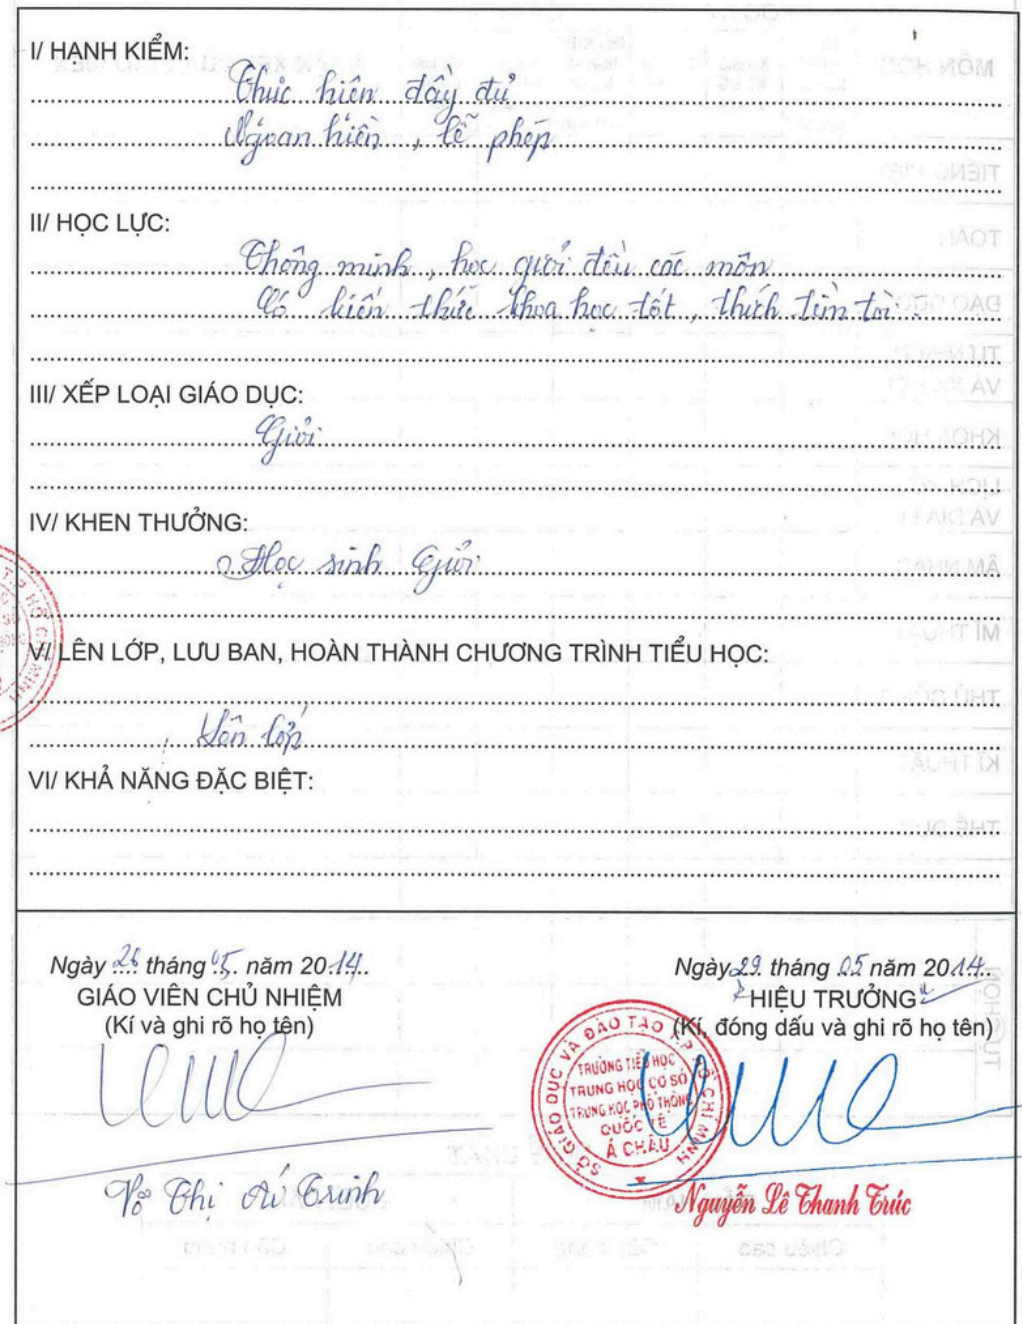 I/ HẠNH KIỂM:
Thực hiện đầy đủ
Ngoan hiền, lễ phép
II/ HỌC LỰC:
Thông minh, học giỏi đều các môn
Có kiến thức khoa học tốt, thích tìm tòi.
III/ XẾP LOẠI GIÁO DỤC:
Giỏi
IV/ KHEN THƯỞNG:
Học sinh Giỏi
V/ LÊN LỚP, LƯU BAN, HOÀN THÀNH CHƯƠNG TRÌNH TIỂU HỌC:
Lên lớp
VI/ KHẢ NĂNG ĐẶC BIỆT:
Ngày 26 tháng 05 năm 2014
GIÁO VIÊN CHỦ NHIỆM
(Kí và ghi rõ họ tên)
Võ Thị Tú Trinh
Ngày 29 tháng 05 năm 2014
HIỆU TRƯỞNG
(Kí, đóng dấu và ghi rõ họ tên)
SỞ GIÁO DỤC VÀ ĐÀO TẠO TP HỒ CHÍ MINH
TRƯỜNG TIỂU HỌC
TRUNG HỌC CƠ SỞ
TRUNG HỌC PHỔ THÔNG
QUỐC TẾ
Á CHÂU
Nguyễn Lê Thanh Trúc